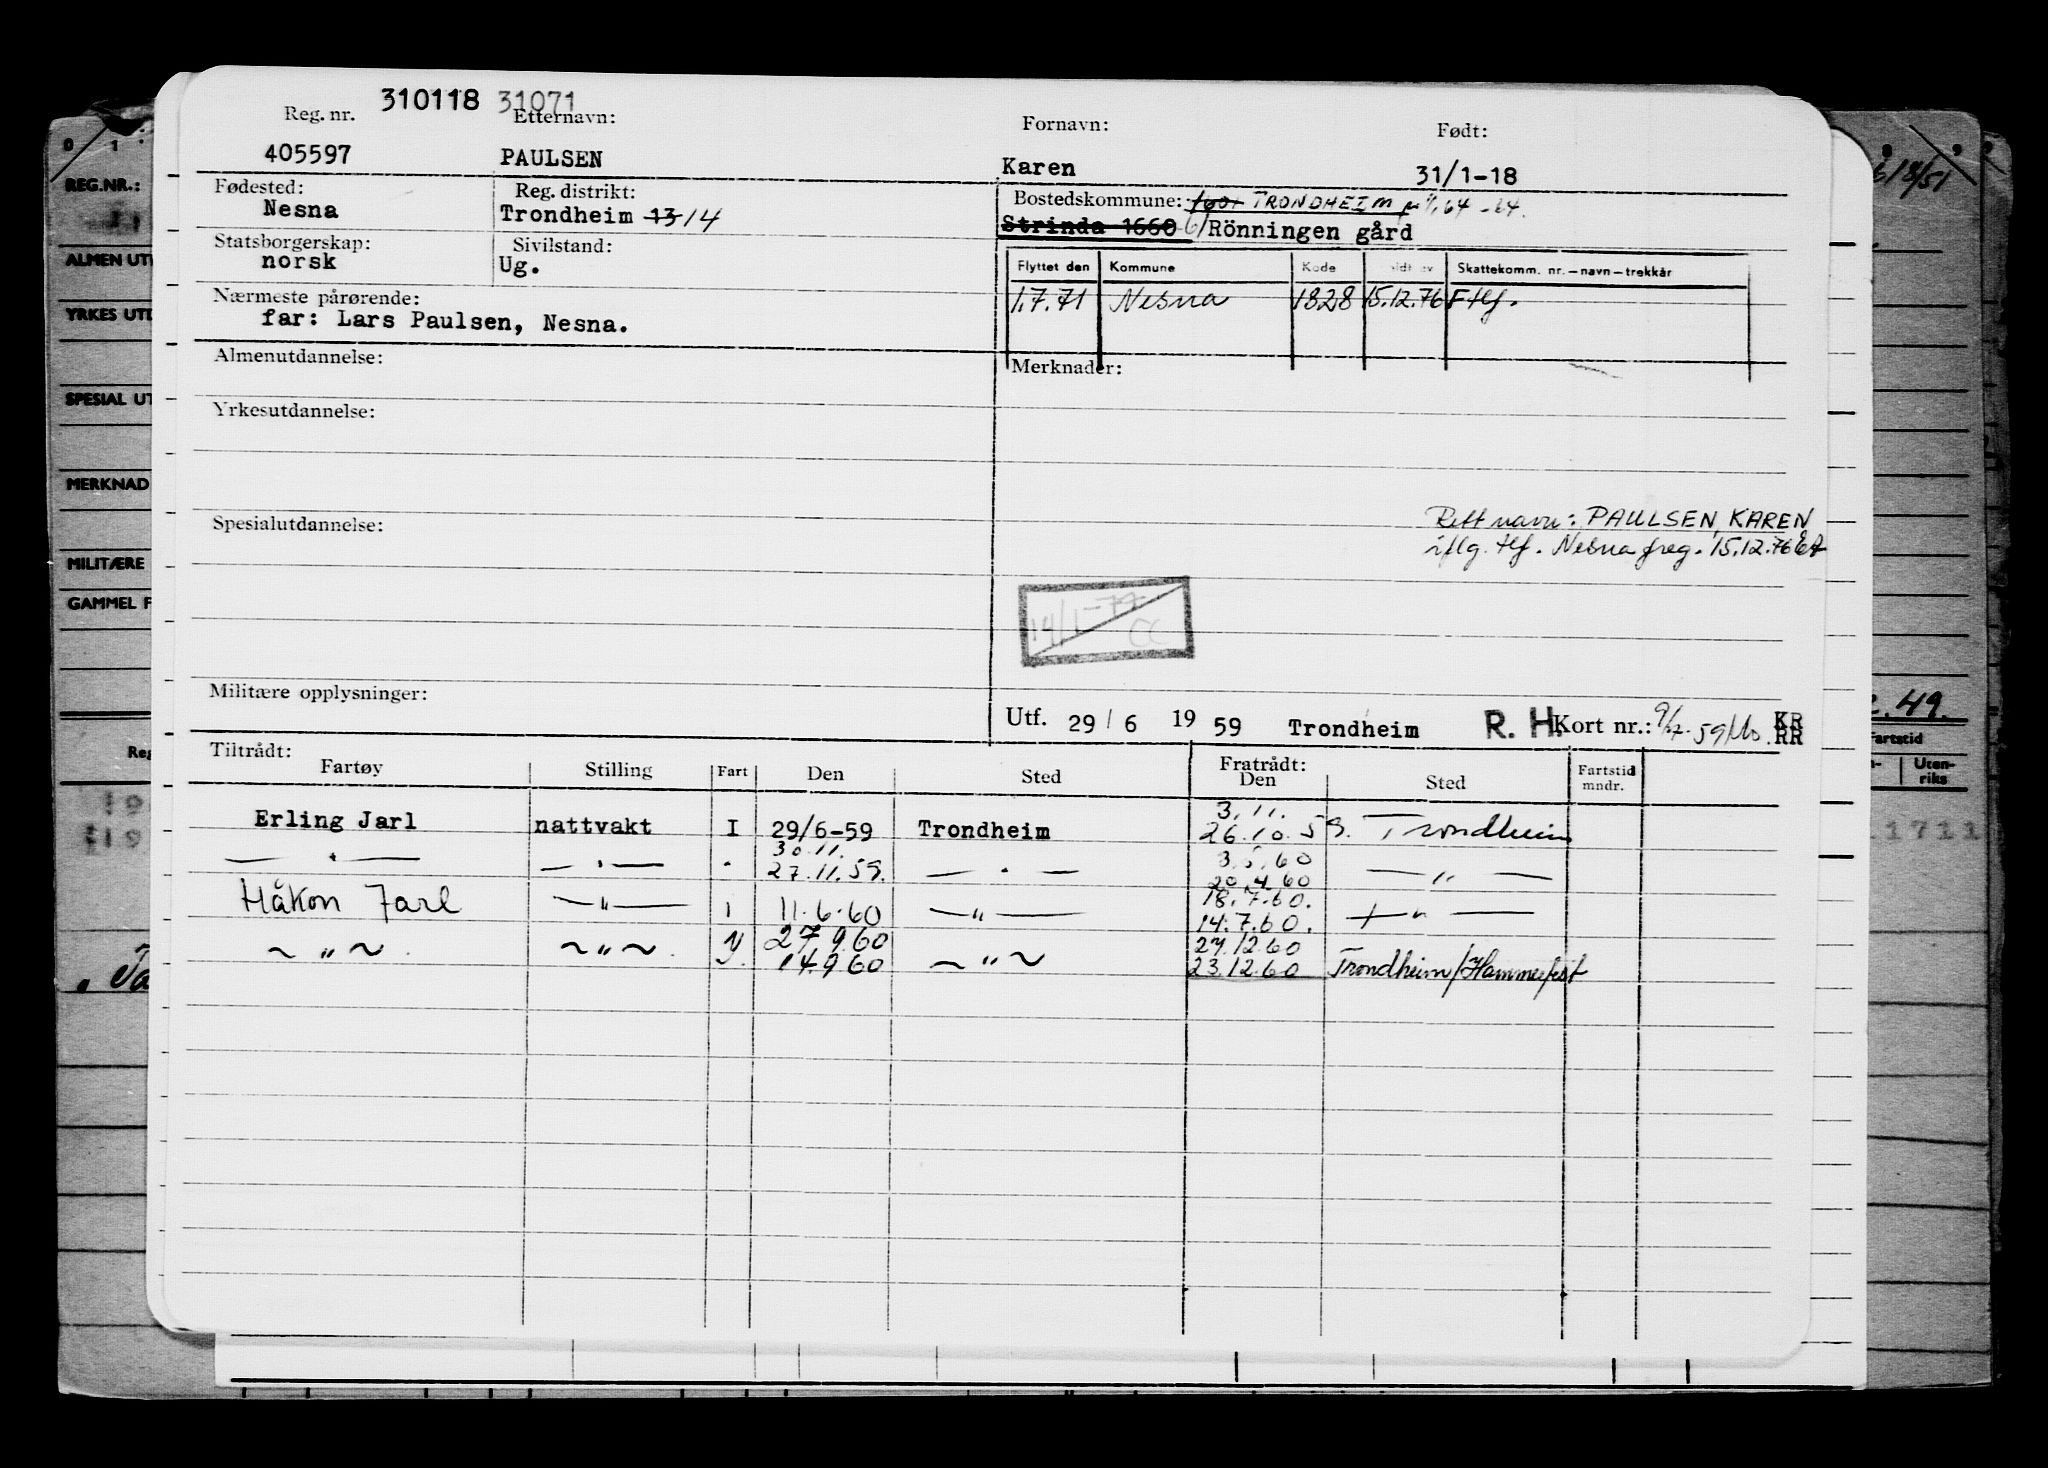 310118 31071
Reg. nr. Etternavn: Fornavn: Født:
405597 PAULSEN Karen 31/1-18
Fødested: Reg. distrikt: Bostedskommune: TRONDHEIM
Nesna Trondheim 13 14 Strinda 1660 Rönningen gård
Statsborgerskap: Sivilstand:
norsk Ug.
Flyttet den Kommune Kode Skattekomm. nr.—navn—trekkår
1.7.71 Nesna 1828 15.12.76 F tlf.
Nærmeste pårørende:
far: Lars Paulsen, Nesna.
Almenutdannelse: Merknader:
Yrkesutdannelse:
Rett navn: PAULSEN, KAREN
Spesialutdannelse:
iflg. tlf. Nesna freg. 15.12.76
14/1-77 CC
Militære opplysninger:
Utf. 29/6 1959 Trondheim R. H. Kort nr.: KR
RR
Tiltrådt: Fratrådt:
Fartøy Stilling Fart Den Sted Den Sted Fartstid mndr.
3.11.
Erling Jarl nattvakt I 29/6-59 Trondheim 26.10.59. Trondheim
30.11. 3.5.60
— " — — " — " 27.11.59. — " — 20.4.60 — " —
18.7.60.
Håkon Jarl — " — 11.6.60 — " — 14.7.60. — " —
27.9.60 27.12.60
~ " ~ ~ " ~ 14.9.60 ~ " ~ 23.12.60 Trondheim/Hammerfest
0 1
REG.NR.:
ALMEN UT
YRKES UTD
SPESIAL UT
MERKNAD
MILITÆRE
GAMMEL F
Reg
6/8/51
.49.
Fartstid
Uten-
riks
1711